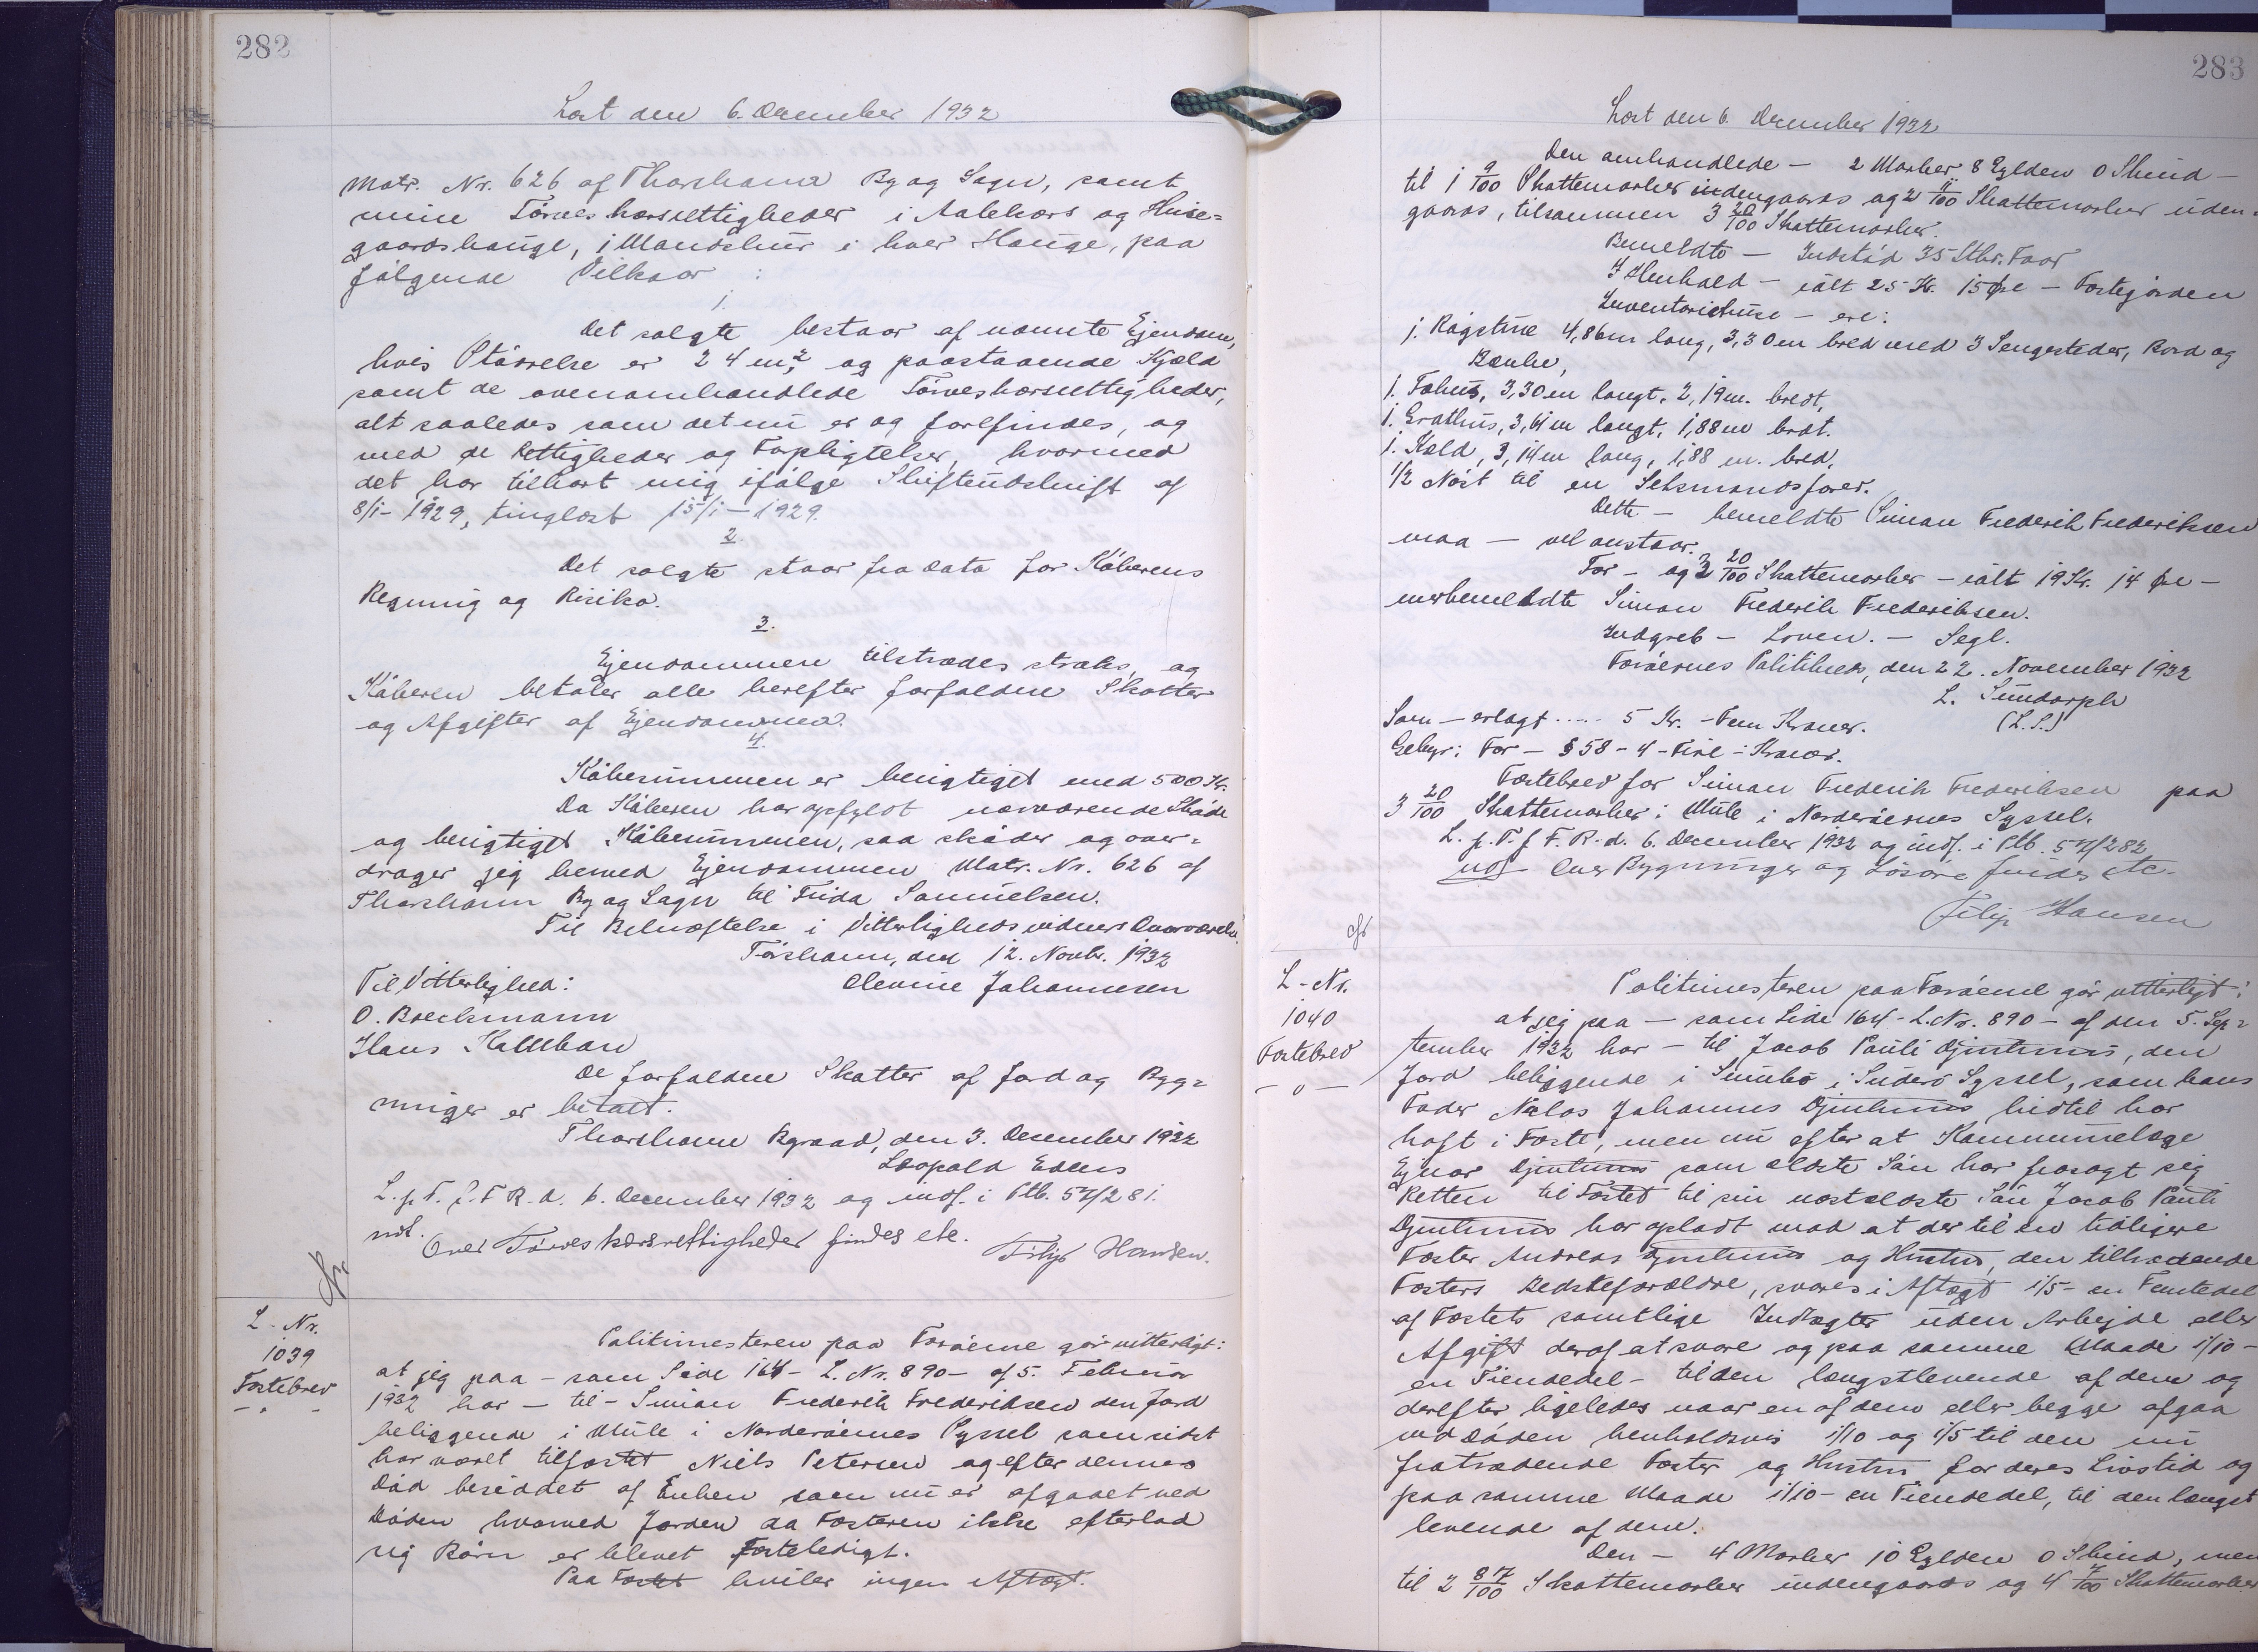 282
Læst den 6. December 1932
Matr. Nr. 626 af Thorshavn By og Sogn, samt
mine Törveskærsrettigheder i Aalekærs og Huse=
gaardshauge, 1 Mandskur i hver Hauge, paa
følgende Vilkaar:
1.
Det solgte bestaar af nævnte Ejendom,
hvis Störrelse er 24 m², og paastaaende Kjæld
samt de ovenomhandlede Törveskærsrettigheder,
alt saaledes som det nu er og forefindes, og
med de Rettigheder og Forpligtelser, hvormed
det har tilhørt mig ifølge Skifteudskrift af
8/1-1929, tinglæst 15/1-1929.
2.
Det solgte staar fra Dato for Köberens
Regning og Risiko.
3.
Ejendommen tiltrædes straks, og
Köberen betaler alle herefter forfaldne Skatter
og Afgifter af Ejendommen.
4.
Köbesummen er berigtiget med 500 Kr.
Da Köberen har opfyldt nærværende Sköde
og berigtiget Köbesummen, saa sköder og over=
drager jeg herved Ejendommen Matr. Nr. 626 af
Thorshavn By og Sogn til Frida Samuelsen.
Til Bekræftelse i Vitterlighedsvidners Overværelse.
Tórshavn, den 12. Novbr. 1932
Til Vitterlighed: Olevine Johannesen
O. Boeckmann
Hans
De forfaldne Skatter af Jord og Byg=
ninger er betalt.
Thorshavn Byraad, den 3. December 1932
Leopold
L. p. T. f. F. R. d. 6. December 1932 og indf. i Ptb. 57/281.
ndt. Over Törveskærsrettigheder findes etc. Filip Hansen.
L-Nr.
1039
Fæstebrev
- " -
Politimesteren paa Færöerne gör vitterligt:
at jeg paa - som Side 164 - L. Nr. 890 - af 5. Februar
1932 har - til - Simon Frederik Frederiksen den Jord
beliggende i Mule i Norderöernes Syssel som sidst
har været tilfæstet Niels Petersen og efter dennes
Död besiddet af Enken som nu er afgaaet ved
Döden hvorved Jorden da Fæsteren ikke efterlod
sig Börn er blevet fæsteledigt.
Paa Fæstet hviler ingen Aftægt.
283
Læst den 6. December 1932
Den omhandlede - 2 Marker 8 Gylden 0 Skind -
til 1 9/100 Skattemarker indengaards og 2 11/100 Skattemarker uden=
gaards, tilsammen 3 20/100 Skattemarker.
Bemeldte - Indstöd 35 Stkr. Faar
I Henhold - ialt 25 Kr. 15 Øre - Fæstejorden
Inventariehuse - ere:
1. Rögstue 4,86m lang, 3,30m bred med 3 Sengesteder, Bord og
Bænke,
1. Fæhus, 3,30m langt, 2,19m. bredt,
1. Grothus, 3,61m langt, 1,88m bredt.
1. Kæld, 3,14m lang, 1,88 m. bred,
1/2 Nöst til en Seksmandsfarer.
Dette - bemeldte Simon Frederik Frederiksen
maa - vel anstaar.
For - og 3 20/100 Skattemarker - ialt 19 Kr. 14 Øre -
merbemeldte Simon Frederik Frederiksen.
Indgreb - Loven. - Segl.
Færöernes Politikreds, den 22. November 1932
L. Sundorph
(L.S.)
Som - erlagt ..... 5 Kr. - Fem Kroner.
Gebyr: For - § 58 - 4 - Fire - Kroner.
Fæstebrev for Simon Frederik Frederiksen paa
3 20/100 Skattemarker i Mule i Norderöernes Syssel.
L. p. T. f. F. R. d. 6. December 1932 og indf. i Ptb. 57/282
ndt. Over Bygninger og Lösöre findes etc.
Filip Hansen
L-Nr.
1040
Fæstebrev
- " -
Politimesteren paa Færöerne gör vitterligt:
at jeg paa - som Side 164 - L. Nr. 890 - af den 5. Sep=
tember 1932 har - til Jacob Pauli Djurhuus, den
Jord beliggende i Sumbö i Suderö Syssel, som hans
Fader Niclas Johannes Djurhuus hidtil har
haft i Fæste, men nu efter at Kommunelæge
Ejnar Djurhuus som ældste Sön har frasagt sig
Retten til Fæstet til sin næstældste Sön Jacob Pauli
Djurhuus har opladt mod at der til en tidligere
Fæster Andreas Djurhuus og Hustru, den tiltrædende
Fæsters Bedsteforældre, svares i Aftægt 1/5 - en Femtedel
af Fæstets samtlige Indtægter uden Arbejde eller
Afgift deraf at svare og paa samme Maade 1/10 -
en Tiendedel - til den længstlevende af dem og
derefter ligeledes naar en af dem eller begge afgaa
ved Döden henholdsvis 1/10 og 1/5 til den nu
fratrædende Fæster og Hustru for deres Livstid og
paa samme Maade 1/10 - en Tiendedel, til den længst
levende af dem.
Den - 4 Marker 10 Gylden 0 Skind, men
til 2 87/100 Skattemarker indengaards og 4 7/100 Skattemarker